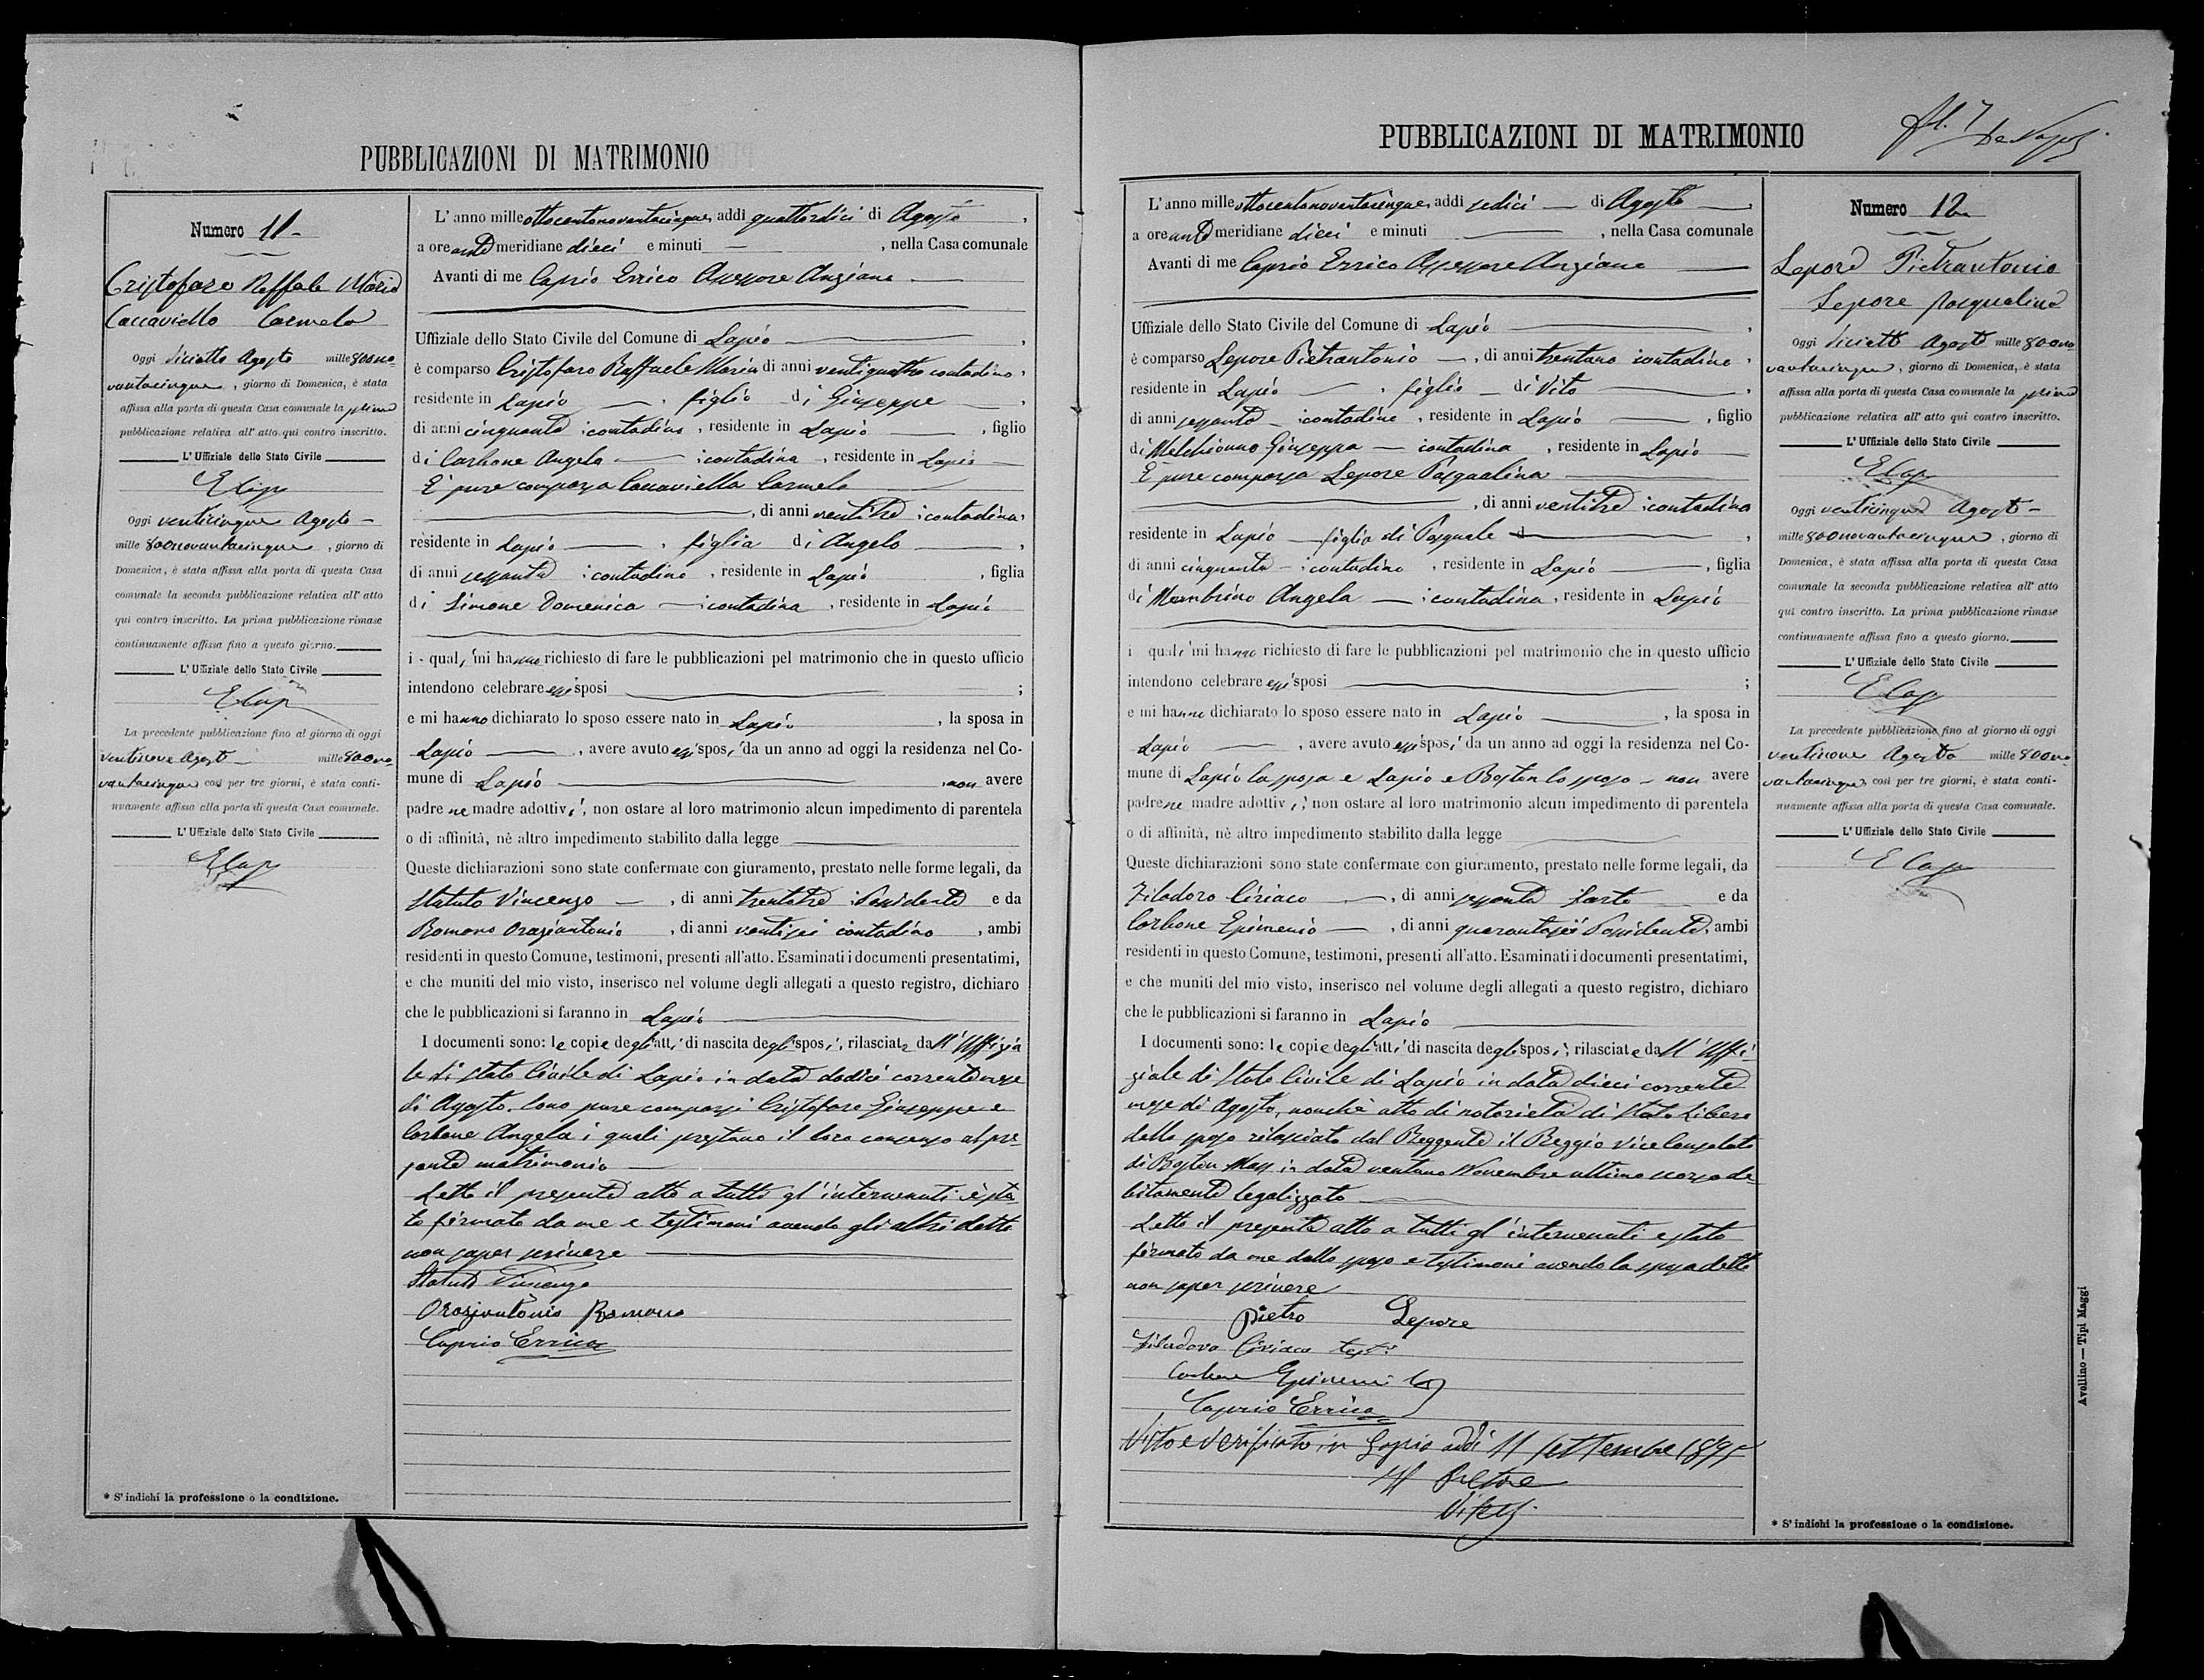 PUBBLICAZIONI DI MATRIMONIO
Numero 11
Cristofaro Raffaele Maria
Caccaviello Carmela
Oggi diciotto Agosto mille 800no
vantacinque, giorno di Domenica, è stata
affissa alla porta di questa Casa comunale la prima
pubblicazione relativa all' atto qui contro inscritto.
L' Uffiziale dello Stato Civile
Oggi venticinque Agosto
mille 800novantacinque, giorno di
Domenica, è stata affissa alla porta di questa Casa
comunale la seconda pubblicazione relativa all' atto
qui contro inscritto. La prima pubblicazione rimase
continuamente affissa fino a questo giorno.
L' Uffiziale dello Stato Civile
La precedente pubblicazione fino al giorno di oggi
ventinove Agosto mille 800no
vantacinque così per tre giorni, è stata conti-
nuamente affissa alla porta di questa Casa comunale.
L' Uffiziale dello Stato Civile
* S' indichi la professione o la condizione.
L' anno mille ottocentonovantacinque, addì quattordici di Agosto,
a ore ante meridiane dieci e minuti —, nella Casa comunale
Avanti di me Caprio Errico Assessore Anziano
Uffiziale dello Stato Civile del Comune di Lapio,
è comparso Cristofaro Raffaele Maria di anni ventiquattro contadino,
residente in Lapio, figlio di Giuseppe,
di anni cinquanta contadino, residente in Lapio, figlio
di Carbone Angela contadina, residente in Lapio
E' pure comparsa Caccaviello Carmela
, di anni ventitre contadina,
residente in Lapio, figlia di Angelo,
di anni sessanta contadino, residente in Lapio, figlia
di Simone Domenica contadina, residente in Lapio
i quali mi hanno richiesto di fare le pubblicazioni pel matrimonio che in questo ufficio
intendono celebrare essi sposi ;
e mi hanno dichiarato lo sposo essere nato in Lapio, la sposa in
Lapio, avere avuto essi sposi da un anno ad oggi la residenza nel Co-
mune di Lapio, non avere
padre ne madre adottivi, non ostare al loro matrimonio alcun impedimento di parentela
o di affinità, nè altro impedimento stabilito dalla legge
Queste dichiarazioni sono state confermate con giuramento, prestato nelle forme legali, da
Statuto Vincenzo, di anni trentatre Possidente e da
Romano Oraziantonio, di anni ventisei contadino, ambi
residenti in questo Comune, testimoni, presenti all'atto. Esaminati i documenti presentatimi,
e che muniti del mio visto, inserisco nel volume degli allegati a questo registro, dichiaro
che le pubblicazioni si faranno in Lapio
I documenti sono: le copie degli atti di nascita degli sposi, rilasciate dall'Uffizia
le di stato Civile di Lapio in data dodici corrente mese
di Agosto. Sono pure comparsi Cristofaro Giuseppe e
Carbone Angela i quali prestano il loro consenso al pre-
sente matrimonio
Letto il presente atto a tutti gl'intervenuti è sta
to firmato da me e testimoni avendo gli altri detto
non saper scrivere
Statuto Vincenzo
Oraziantonio Romano
Caprio Errico
PUBBLICAZIONI DI MATRIMONIO
L' anno mille ottocentonovantacinque, addì sedici di Agosto,
a ore ante meridiane dieci e minuti —, nella Casa comunale
Avanti di me Caprio Errico Assessore Anziano
Uffiziale dello Stato Civile del Comune di Lapio,
è comparso Lepore Pietrantonio, di anni trentuno contadino,
residente in Lapio, figlio di Vito,
di anni sessanta contadino, residente in Lapio, figlio
di Melchionno Giuseppa contadina, residente in Lapio
E' pure comparsa Lepore Pasqualina
, di anni ventitre contadina
residente in Lapio figlia di Pasquale,
di anni cinquanta contadino, residente in Lapio, figlia
di Mambrino Angela contadina, residente in Lapio
i quali mi hanno richiesto di fare le pubblicazioni pel matrimonio che in questo ufficio
intendono celebrare essi sposi ;
e mi hanno dichiarato lo sposo essere nato in Lapio, la sposa in
Lapio, avere avuto essi sposi da un anno ad oggi la residenza nel Co-
mune di Lapio la sposa e Lapio e Boston lo sposo non avere
padre ne madre adottivi, non ostare al loro matrimonio alcun impedimento di parentela
o di affinità, nè altro impedimento stabilito dalla legge
Queste dichiarazioni sono state confermate con giuramento, prestato nelle forme legali, da
Filadoro Ciriaco, di anni sessanta Sarto e da
Carbone Epimenio, di anni quarantasei Possidente, ambi
residenti in questo Comune, testimoni, presenti all'atto. Esaminati i documenti presentatimi,
e che muniti del mio visto, inserisco nel volume degli allegati a questo registro, dichiaro
che le pubblicazioni si faranno in Lapio
I documenti sono: le copie degli atti di nascita degli sposi, rilasciate dall'Uffi-
ziale di Stato Civile di Lapio in data dieci corrente
mese di Agosto, nonchè atto di notorietà di Stato Libero
dello sposo rilasciato dal Reggente il Reggio Vice Consolato
di Boston Mass in data ventuno Novembre ultimo scorso de-
bitamente legalizzato
Letto il presente atto a tutti gl'intervenuti e stato
firmato da me dallo sposo e testimoni avendo la sposa detto
non saper scrivere
Pietro Lepore
Filadoro Ciriaco test.
Carbone Epimenio
Caprio Errico
Visto e verificato in Lapio addì 11 settembre 1895
Il Pretore
Numero 12
Lepore Pietrantonio
Lepore Pasqualina
Oggi diciotto Agosto mille 800no
vantacinque, giorno di Domenica, è stata
affissa alla porta di questa Casa comunale la prima
pubblicazione relativa all' atto qui contro inscritto.
L' Uffiziale dello Stato Civile
Oggi venticinque Agosto
mille 800novantacinque, giorno di
Domenica, è stata affissa alla porta di questa Casa
comunale la seconda pubblicazione relativa all' atto
qui contro inscritto. La prima pubblicazione rimase
continuamente affissa fino a questo giorno.
L' Uffiziale dello Stato Civile
La precedente pubblicazione fino al giorno di oggi
ventinove Agosto mille 800no
vantacinque così per tre giorni, è stata conti-
nuamente affissa alla porta di questa Casa comunale.
L' Uffiziale dello Stato Civile
* S' indichi la professione o la condizione.
Avellino — Tipi Maggi